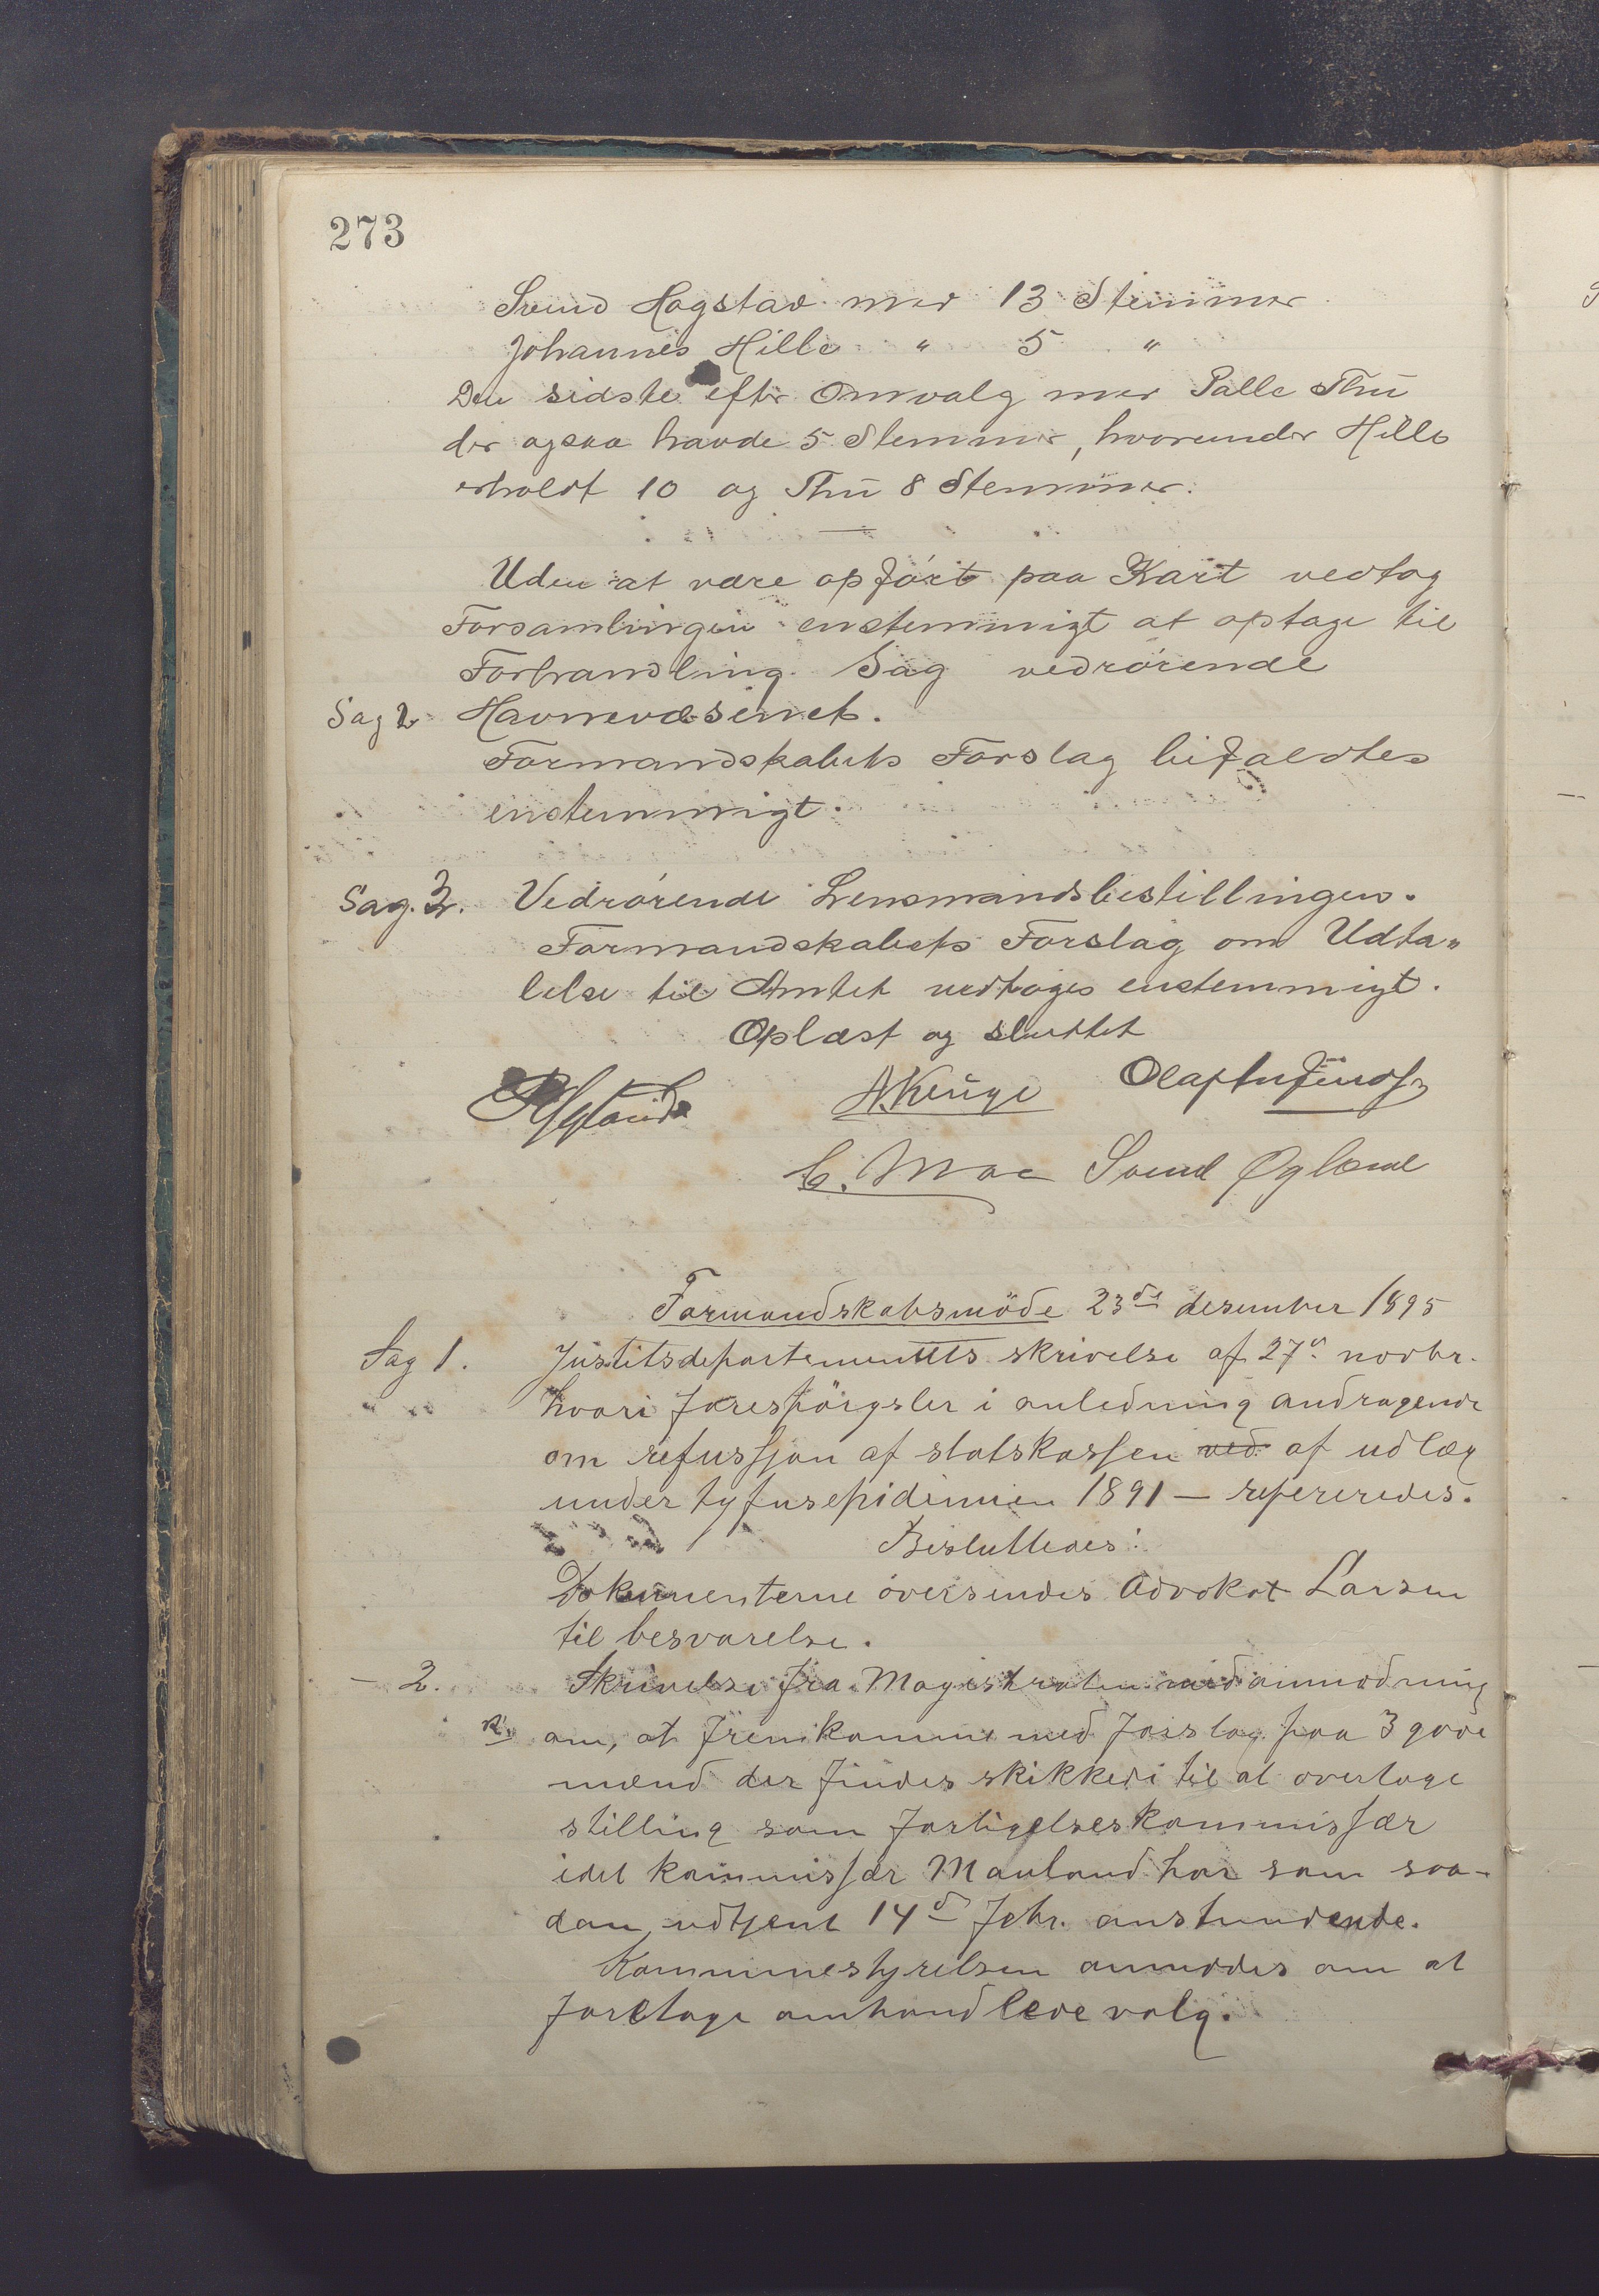 273
Svend Hogstad med 13 Stemmer
Johannes Hille " 5 "
Den sidste efter Omvalg med Palle Thu
der ogsaa havde 5 Stemmer, hvorunder Hille
erholdt 10 og Thu 8 Stemmer.
Uden at være opført paa Kart vedtog
Forsamlingen enstemmigt at optage til
Forhandling Sag vedrørende
Sag 2 Havnevæsenet.
Formandskabets Forslag bifaldtes
enstemmigt.
Sag. 3. Vedrørende Lensmandsbestillingen.
Formandskabets Forslag om Udta„
lelse til Amtet vedtoges enstemmigt.
Oplæst og sluttet
A. Kenge
C. Moe Svend Øglænd
Formandskabsmöde 23de desember 1895
Sag 1. Justitsdepartementets skrivelse af 27de novbr.
hvori forespörgsler i anledning andragende
om refussjon af statskassen ved af udlæg
under tyfusepidemien 1891 — refereredes.
Besluttedes:
Dokumenterne oversendes Advokat Larsen
til besvarelse.
— 2. Skrivelse fra Magistraten med anmodning
om, at fremkomme med forslag paa 3 gode
mænd der findes skikkede til at overtage
stilling som forligelseskommissær
idet kommissær Mauland har som saa-
dan udtjent 14de febr. anstundende.
Kommunestyrelsen anmodes om at
foretage omhandlede valg.